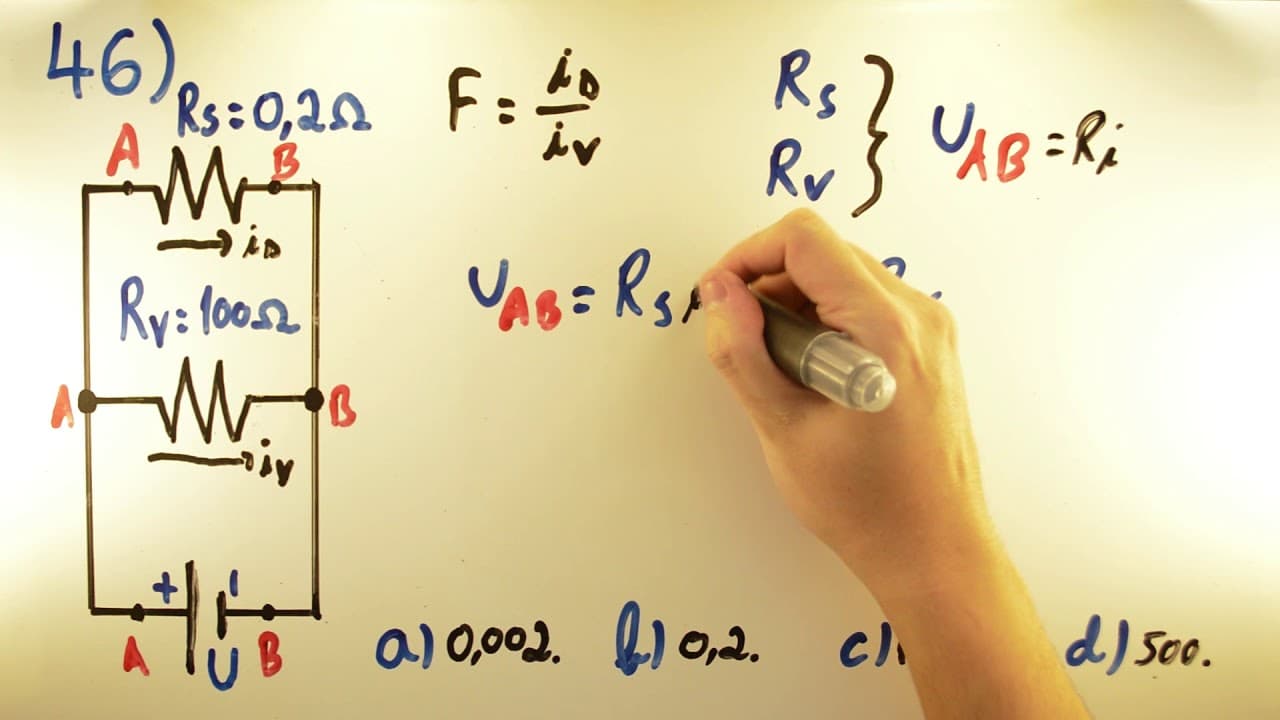 46)
Rs=0,2Ω
A
B
is
Rv=100Ω
A
B
iv
+
A
U
B
F = is/iv
Rs
Rv
} UAB = Ri
UAB = Rs
a) 0,002.
b) 0,2.
c)
d) 500.